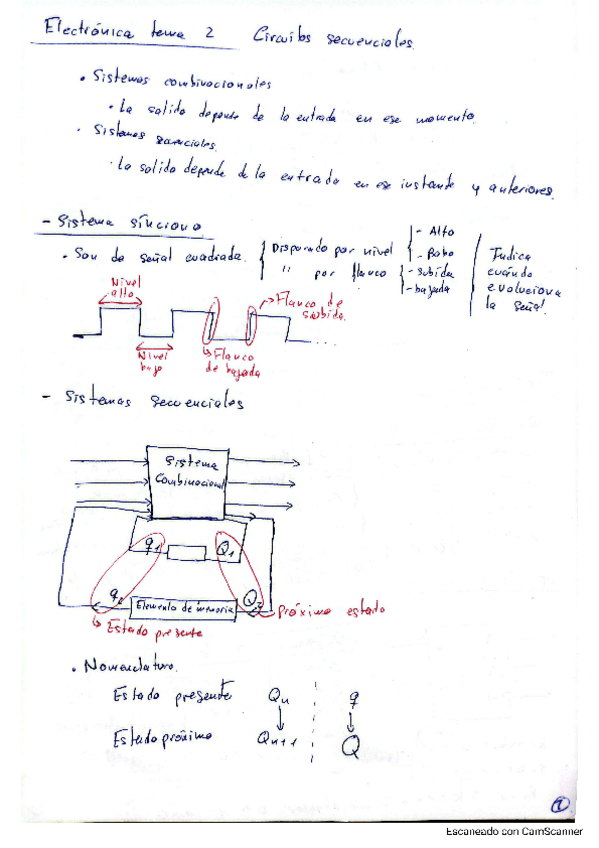 Electrónica tema 2 Circuitos secuenciales.
• Sistemas combinacionales
• La salida depende de la entrada en ese momento.
• Sistemas
• La salida depende de la entrada en ese instante y anteriores.
- Sistema síncrono
• Son de señal cuadrada.
Disparado por nivel
- Alto
- Bajo
" por flanco
- subida
- bajada
Indica
cuándo
evoluciona
la señal.
Nivel
alto
Flanco de
subida.
Nivel
bajo
Flanco
de bajada
- Sistemas secuenciales
Sistema
Combinacional
q1 Q1
q2 Elemento de memoria Q2
Próximo estado
Estado presente
• Nomenclatura.
Estado presente Qn q
Estado próximo Qn+1 Q
1
Escaneado con CamScanner